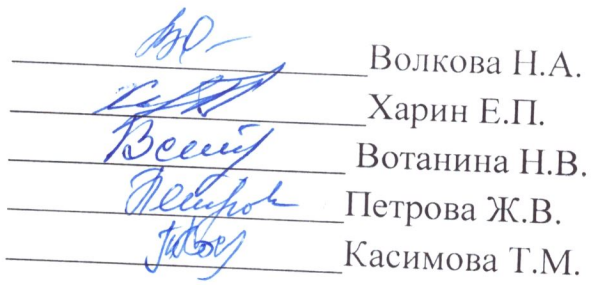 Волкова Н.А.
Харин Е.П.
Вотанина Н.В.
Петрова Ж.В.
Касимова Т.М.